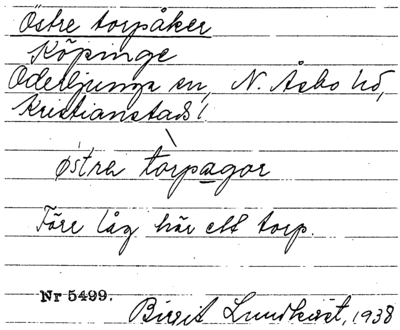 Östre torpåker
Köpinge
Oderljunga sn, N. Åsbo hd,
Kristianstads l
østra torpagor
Före låg här ett torp.
Nr 5499.
Birgit Lundkvist, 1938